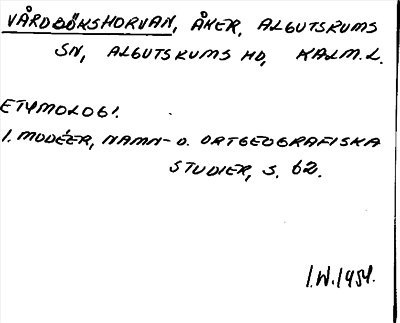 VÅRDBÖKSHORVAN, ÅKER, ALGUTSRUMS
SN, ALGUTSRUMS HD, KALM. L.
ETYMOLOGI.
I. MODÉER, NAMN- O. ORTGEOGRAFISKA
STUDIER, S. 62.
I.W. 1954.